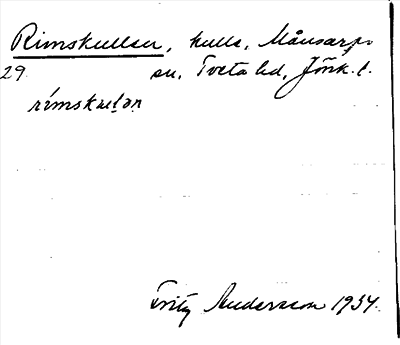 Rimskullen, kulle, Månsarps
29. sn, Tveta hd, Jönk. l.
rimskulən
Fritz Andersson 1934.